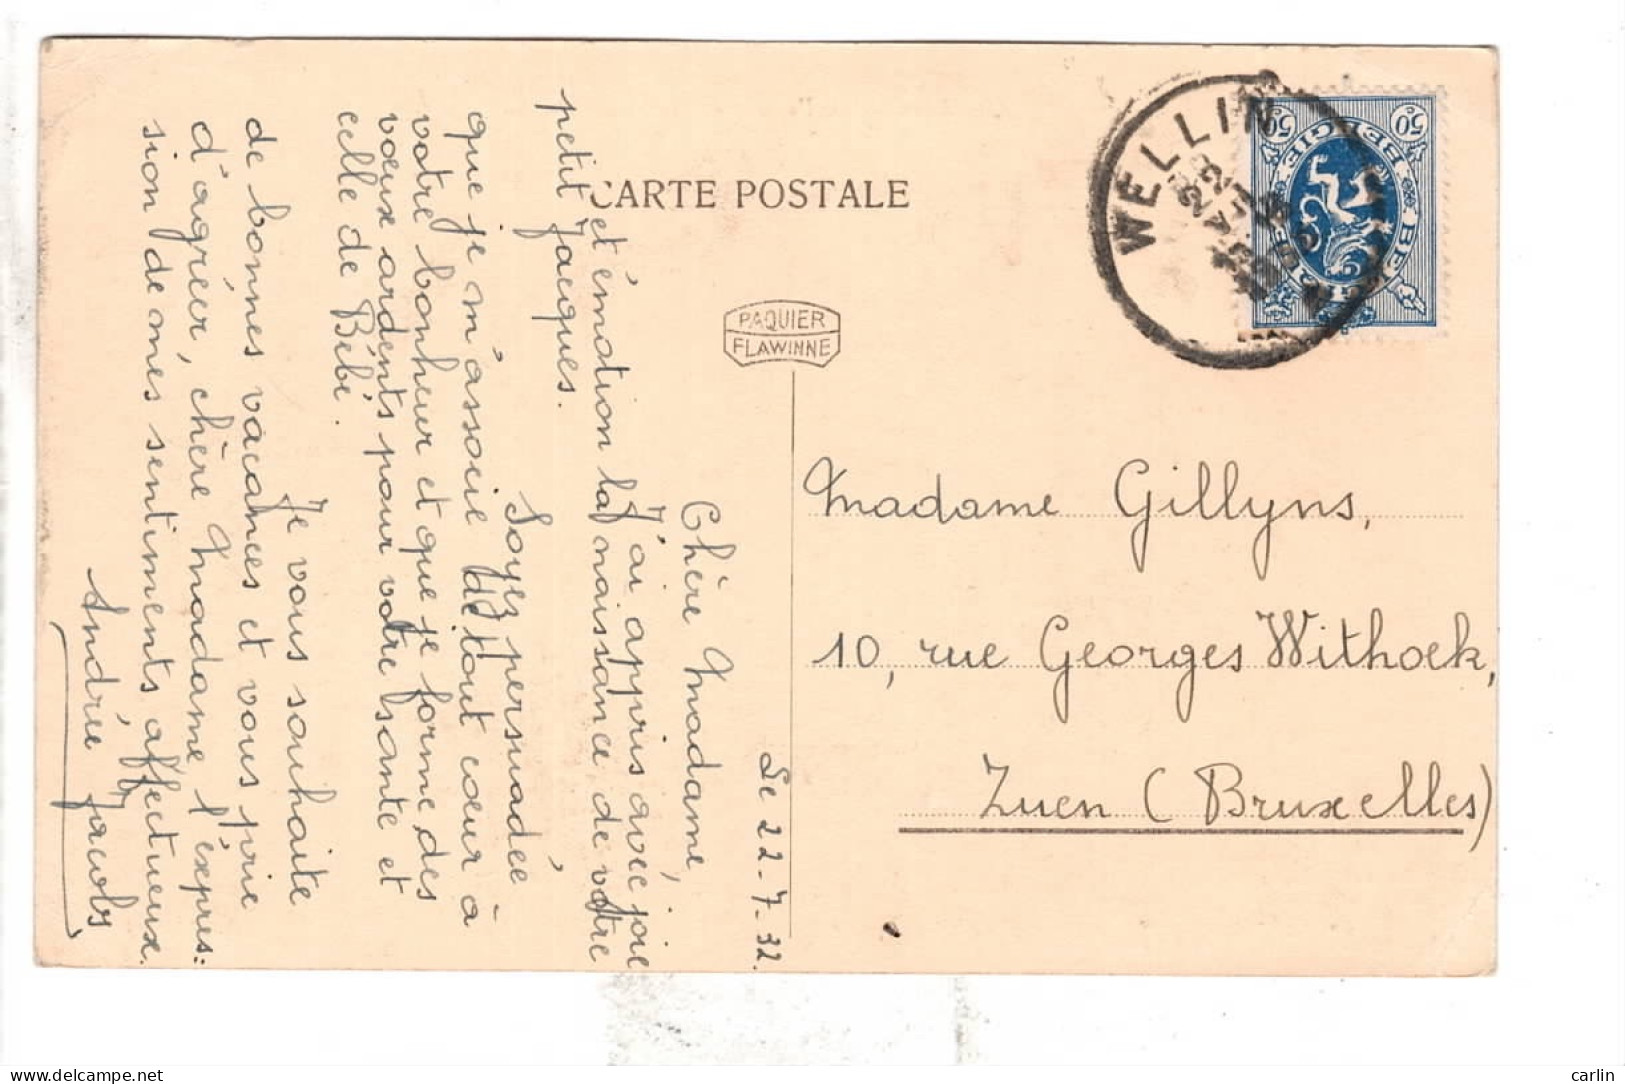 CARTE POSTALE
PAQUIER
FLAWINNE
WELLIN
50
50
BELGIE
Le 22-7-32.
Chère Madame,
J'ai appris avec joie
et émotion la naissance de votre
petit Jacques.
Soyez persuadée
que je m'associe de tout cœur à
votre bonheur et que je forme des
vœux ardents pour votre santé et
celle de Bébé.
Je vous souhaite
de bonnes vacances et vous prie
d'agréer, chère Madame l'expres:
sion de mes sentiments affectueux.
Andrée Jacobs
Madame Gillyns,
10, rue Georges Withoek,
Zuen (Bruxelles)
delcampe.net
carlin